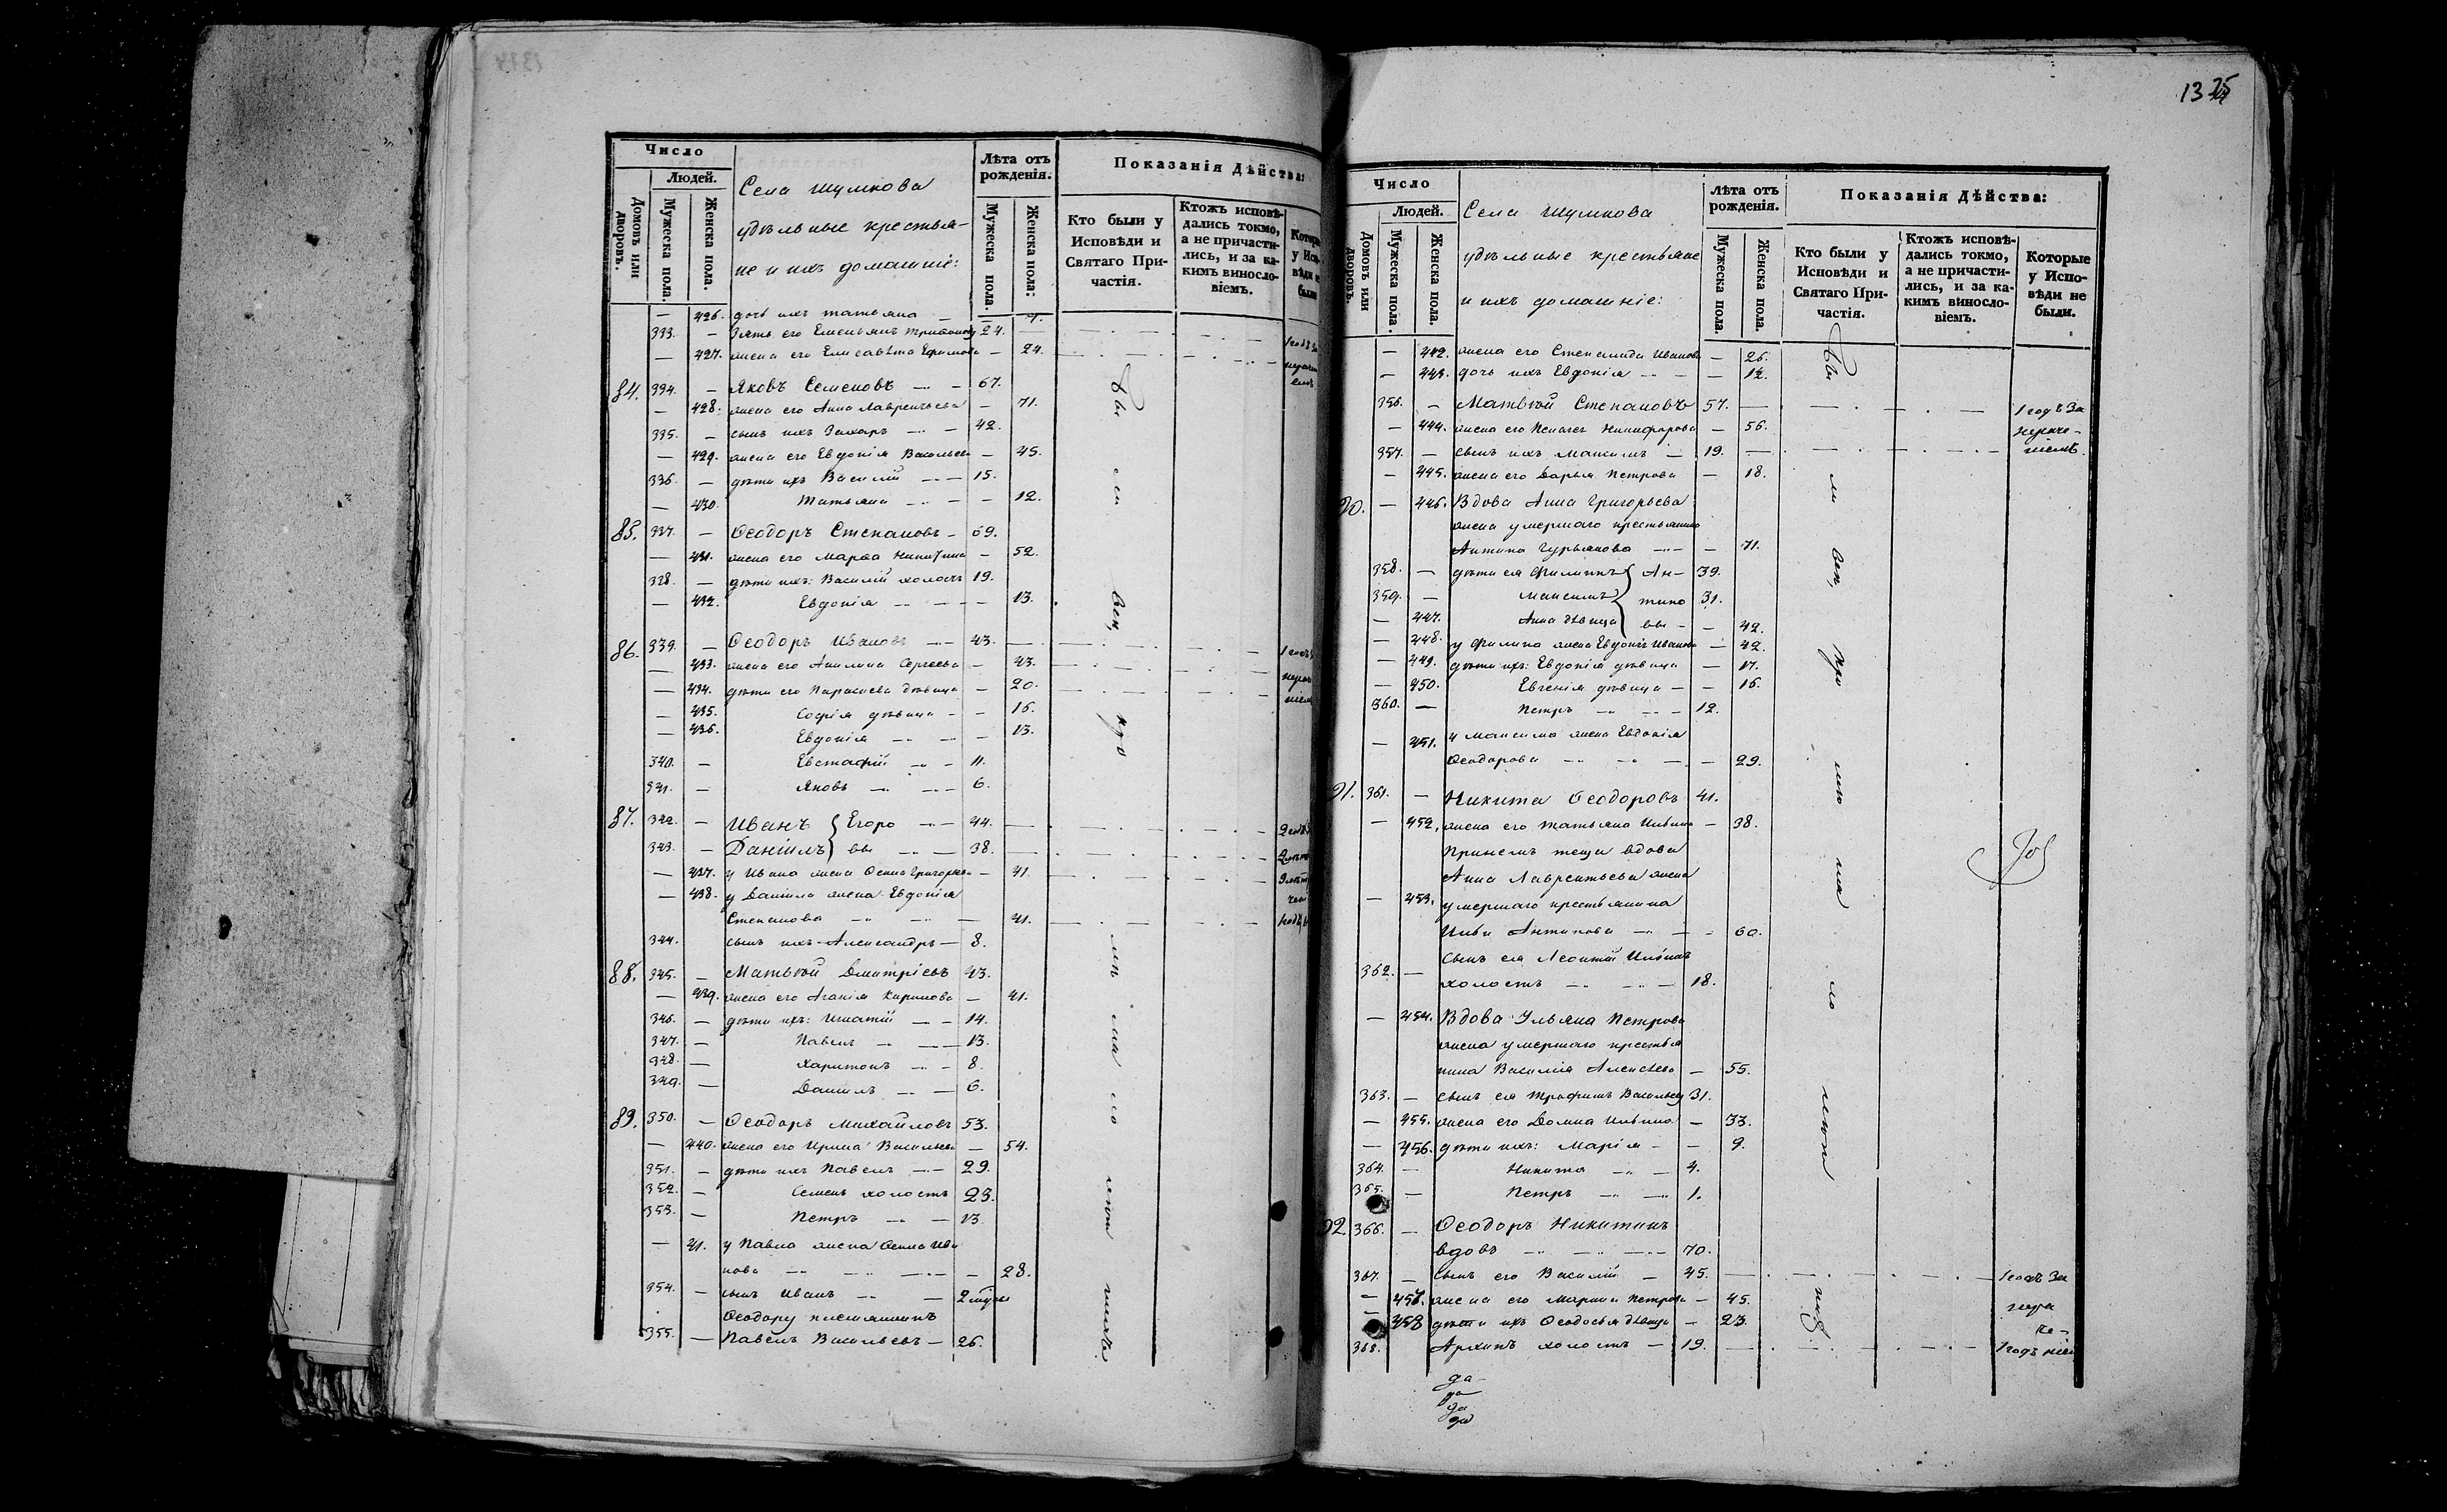 Число
Людей.
Домовъ или дворовъ.
Мужеска пола.
Женска пола.
Села Шумкова
удѣльные крестья-
не и ихъ домашніе:
Лѣта отъ рожденія.
Мужеска пола.
Женска пола:
Показанія Дѣйства:
Кто были у Исповѣди и Святаго При-частія.
Ктожъ исповѣ-дались токмо, а не причасти-лись, и за ка-кимъ виносло-віемъ.
— 426. дочь ихъ Татьяна — 7.
333. — Зять его Емельянъ 24.
— 427. жена его Елисавѣта Ефимова — 24.
84. 334. — Яковъ Семеновъ — 67.
— 428. жена его Анна Лаврентьева — 71.
335. — сынъ ихъ Захаръ — 42.
— 429. жена его Евдокія Васильева — 45.
336. — дѣти ихъ Василій — 15.
— 430. Татьяна — 12.
85. 337. — Ѳеодоръ Степановъ — 69.
— 431. жена его Марѳа Никитина — 52.
338. — дѣти ихъ: Василій холостъ 19.
— 432. Евдокія — 13.
86. 339. — Ѳеодоръ Ивановъ — 43.
— 433. жена его Акилина Сергеева — 43.
— 434. дѣти его Параскева дѣвица — 20.
— 435. Софія дѣвица — 16.
— 436. Евдокія — 13.
340. — Евстафій — 11.
341. — Яковъ — 6.
87. 342. — Иванъ } Егоро — 44.
343. — Даніилъ } вы — 38.
— 437. у Ивана жена Ксенія Григорьева — 41.
— 438. у Даніила жена Евдокія
Степанова — 41.
344. сынъ ихъ Александръ — 8.
88. 345. — Матвѣй Дмитріевъ 43.
— 439. жена его Агапія Кирилова — 41.
346. — дѣти ихъ: Игнатій — 14.
347. — Павелъ — 13.
348. — Харитонъ — 8.
349. — Даніилъ — 6.
89. 350. — Ѳеодоръ Михайловъ 53.
— 440. жена его Ирина Васильева — 54.
351. — дѣти ихъ Павелъ — 29.
352. — Семенъ холостъ 23.
353. — Петръ — 13.
— 41. у Павла жена Ксенія Ива
нова — 28.
354. — сынъ Иванъ — 2
Ѳеодору племянникъ
355. — Павелъ Васильевъ — 26.
1325
Число
Людей.
Домовъ или дворовъ.
Мужеска пола.
Женска пола.
Села Шумкова
удѣльные крестьяне
и ихъ домашніе:
Лѣта отъ рожденія.
Мужеска пола.
Женска пола.
Показанія Дѣйства:
Кто были у Исповѣди и Святаго При-частія.
Ктожъ исповѣ-дались токмо, а не причасти-лись, и за ка-кимъ виносло-віемъ.
Которые у Испо-вѣди не были.
— 442. жена его Степанида Иванова — 26.
— 443. дочь ихъ Евдокія — 12.
356. — Матвѣй Степановъ 57. — 1 годъ за
— 444. жена его Никифорова — 56. нераче-
357. — сынъ ихъ Максимъ — 19. — ніемъ.
— 445. жена его Дарья Петрова — 18.
90. — 446. Вдова Анна Григорьева
жена умершаго крестьянина
Антипа Гурьянова — 71.
358. — дѣти ея Филиппъ } Ан- 39.
359. — Максимъ } типо 31.
— 447. Анна дѣвица } вы — 42.
— 448. у Филипа жена Евдокія Иванова — 42.
— 449. дѣти ихъ: Евдокія дѣвица — 17.
— 450. Евгенія дѣвица — 16.
360. — Петръ — 12.
— 451. у Максима жена Евдокія
Ѳеодорова — 29.
91. 361. — Никита Ѳеодоровъ 41.
— 452. жена его Татьяна Ильина — 38.
При немъ теща вдова
Анна Лаврентьева жена
— 453. умершаго крестьянина
Ильи Антипова — 60.
362. — Сынъ ея Леонтій Ильинъ
холостъ — 18.
— 454. Вдова Ульяна Петрова
жена умершаго крестья
нина Василія Алексѣева — 55.
363. — сынъ ея Трофимъ Васильевъ 31.
— 455. жена его Домна Ильина — 33.
— 456. дѣти ихъ: Марія — 9.
364. — Никита — 4.
365. — Петръ — 1.
92. 366. — Ѳеодоръ Никитинъ
вдовъ — 70.
367. — Сынъ его Василій — 45. — 1 годъ за
— 457. жена его Марина Петрова — 45. нера
— 458 дѣти ихъ Ѳеодосья дѣвица — 23. че-
368. Архипъ холостъ — 19. — 1 годъ ніем
да
да
да
да